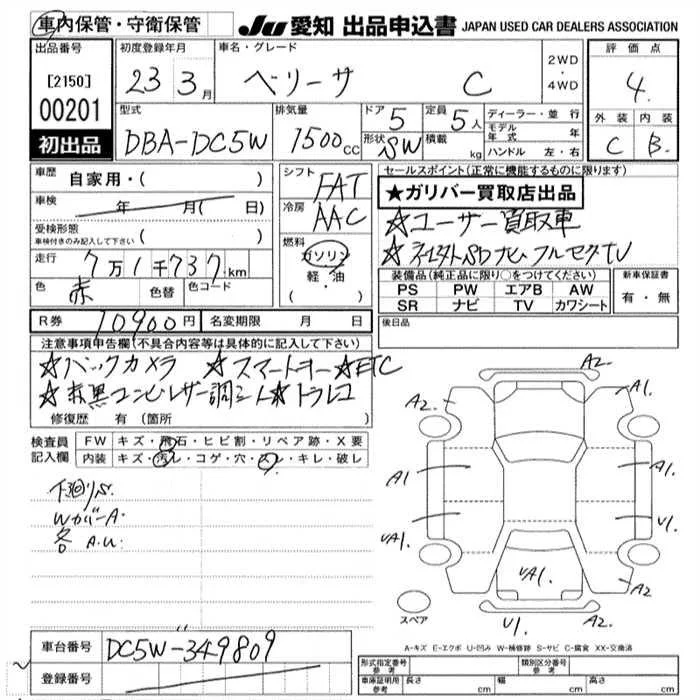 車内保管・守衛保管 JU 愛知 出品申込書 JAPAN USED CAR DEALERS ASSOCIATION
出品番号 初度登録年月 車名・グレード 評価点
[2150] 23 3月 ベリーサ C 2WD・4WD 4
00201
型式 排気量 ドア 5 定員 5人 ディーラー・並行 外装 内装
初出品 DBA-DC5W 1500cc 形状 SW 積載 kg モデル年式 年 C B
ハンドル 左・右
車歴 自家用・( ) シフト FAT セールスポイント(正常に機能するものに限ります)
車検 年 月( 日) 冷房 AAC ★ガリバー買取店出品
受検形態 ( ) ☆ユーザー買取車
車検付きのみ記入して下さい
燃料 ガソリン 軽・油 ・( ) ☆社外SDナビ フルセグTV
走行 7万1千737km
色 赤 色替 色コード
装備品(純正品に限り○をつけてください) 新車保証書
PS PW エアB AW 有・無
SR ナビ TV カワシート
R券 10900円 名変期限 月 日 後日品
注意事項申告欄(不具合内容等は具体的に記入して下さい)
☆バックカメラ ☆スマートキー☆ETC
☆赤黒コンビレザー調シート☆ドラレコ
修復歴 有(箇所
検査員 FW キズ・飛石・ヒビ割・リペア跡・X要
記入欄 内装 キズ・汚レ・コゲ・穴・スレ・キレ・破レ
下廻りS.
WカバーA.
各 A.U.
A2. A2. A1.
A1 A1.
UA1. U1.
UA1. A2
U1.
スペア
A-キズ E-エクボ U-凹み W-補修跡 S-サビ C-腐食 XX-交換済
車台番号 DC5W-349809
登録番号
形式指定番号 参考 類別区分番号 参考
車庫証明用 参考 長さ cm 幅 cm 高さ cm